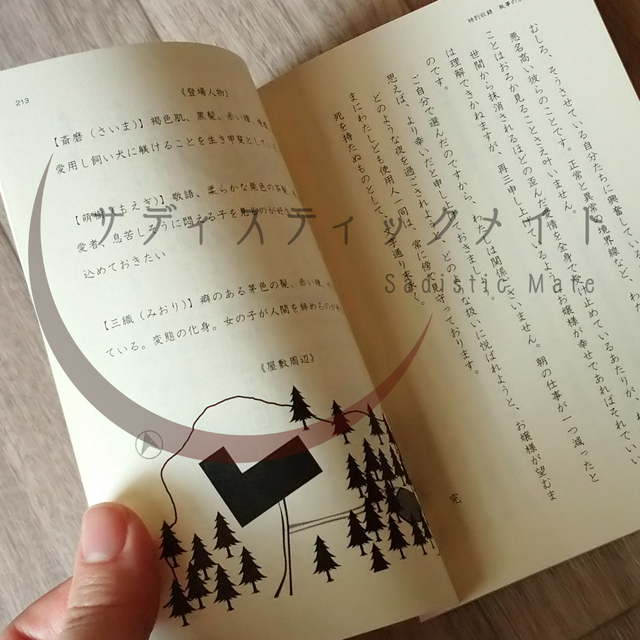 特別収録　執事の
むしろ、そうさせている自分たちに興奮している
悪名高い彼らのことです。正常と異常の境界線など、
ことはおろか見ることさえ叶いません。
世間から抹消されるほどの歪んだ愛情を全身で受け止めているあたりが、
は理解できかねますが、再三申し上げ お嬢様が幸せであればそれでいい
のです。
ご自分で選んだのですから、わ は関係ございません。朝の仕事が一つ減ったと
思えば、より幸いだと申し上げておきましょう。
どのような夜を過ごされよう どのような扱いに悦ばれようと、お嬢様が望むま
まにわたしども使用人一同は、常に傍で見守っております。
死を持たぬものとして、文字通り末永く。
完
213
《登場人物》
【斎磨（さいま）】褐色肌、黒髪、赤い瞳。
愛用し飼い犬に躾けることを生き甲斐として
敬語、柔らかな栗色の茶髪、
愛者。息苦しそうに悶える子を見るのが好
込めておきたい
【三織（みおり）】癖のある芽色の髪、赤い瞳。
ている。変態の化身。女の子が人間を辞めるのが
《屋敷周辺》
サディスティックメイト
Sadistic Mate